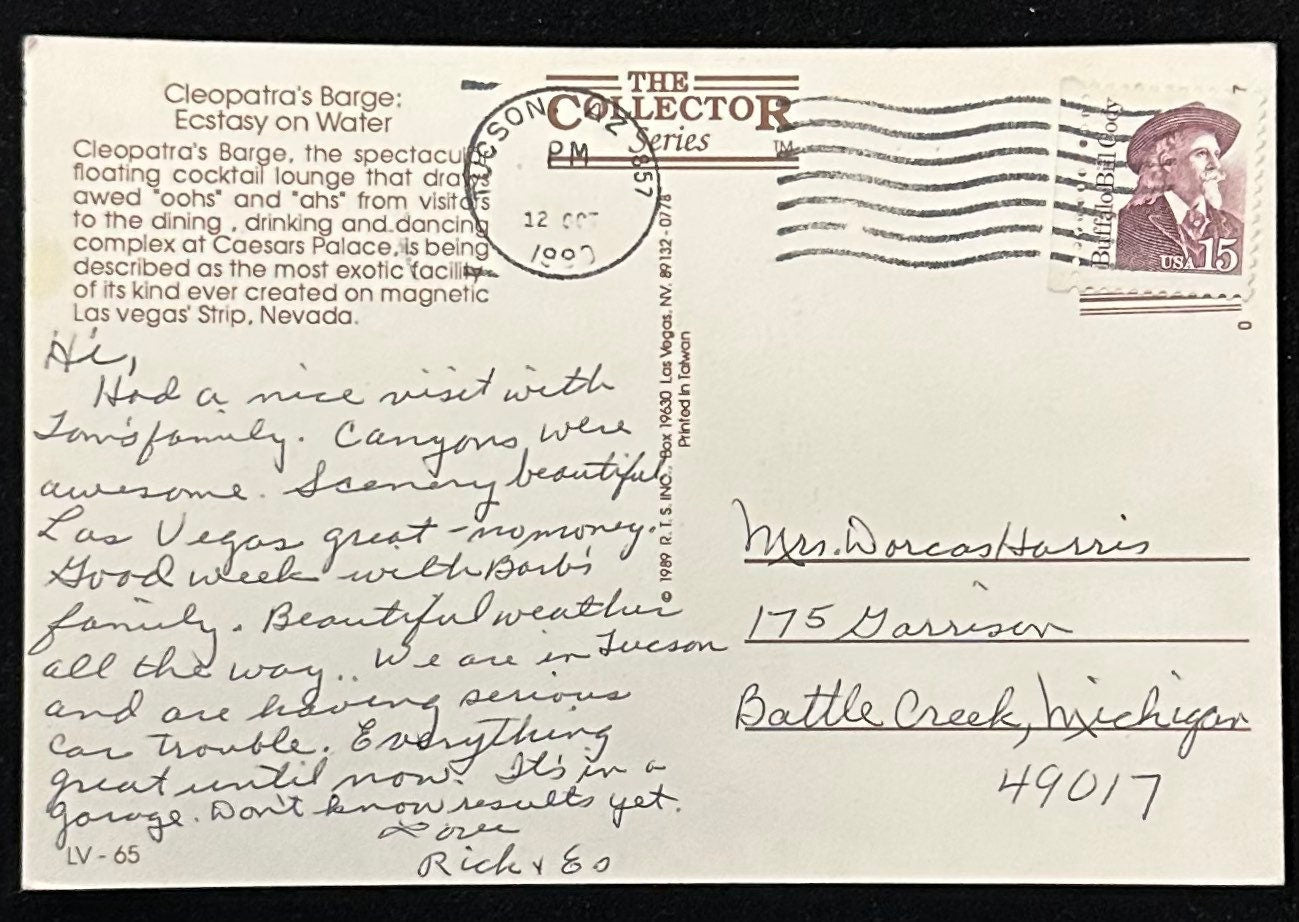 Cleopatra's Barge:
Ecstasy on Water
Cleopatra's Barge, the spectacul
floating cocktail lounge that dra
awed "oohs" and "ahs" from visitors
to the dining , drinking and dancing
complex at Caesars Palace, is being
described as the most exotic facility
of its kind ever created on magnetic
Las vegas' Strip, Nevada.
THE
COLLECTOR
Series
TM
TUCSON, AZ 857
PM
12 OCT
Buffalo Bill Cody
USA 15
7
0
Hi,
Had a nice visit with
Tom's family. Canyons were
awesome. Scenery beautiful
Las Vegas great - no money.
Good week with Barb's
family. Beautiful weather
all the way.. We are in Tucson
and are having serious
car trouble. Everything
great until now. It's in a
garage. Don't know results yet.
Love
Rick & Es
LV - 65
© 1989 R. T. S. INC., Box 19630 Las Vegas, NV. 89132 - 0778
Printed in Taiwan
Mrs. Dorcas Harris
175 Garrison
Battle Creek, Michigan
49017